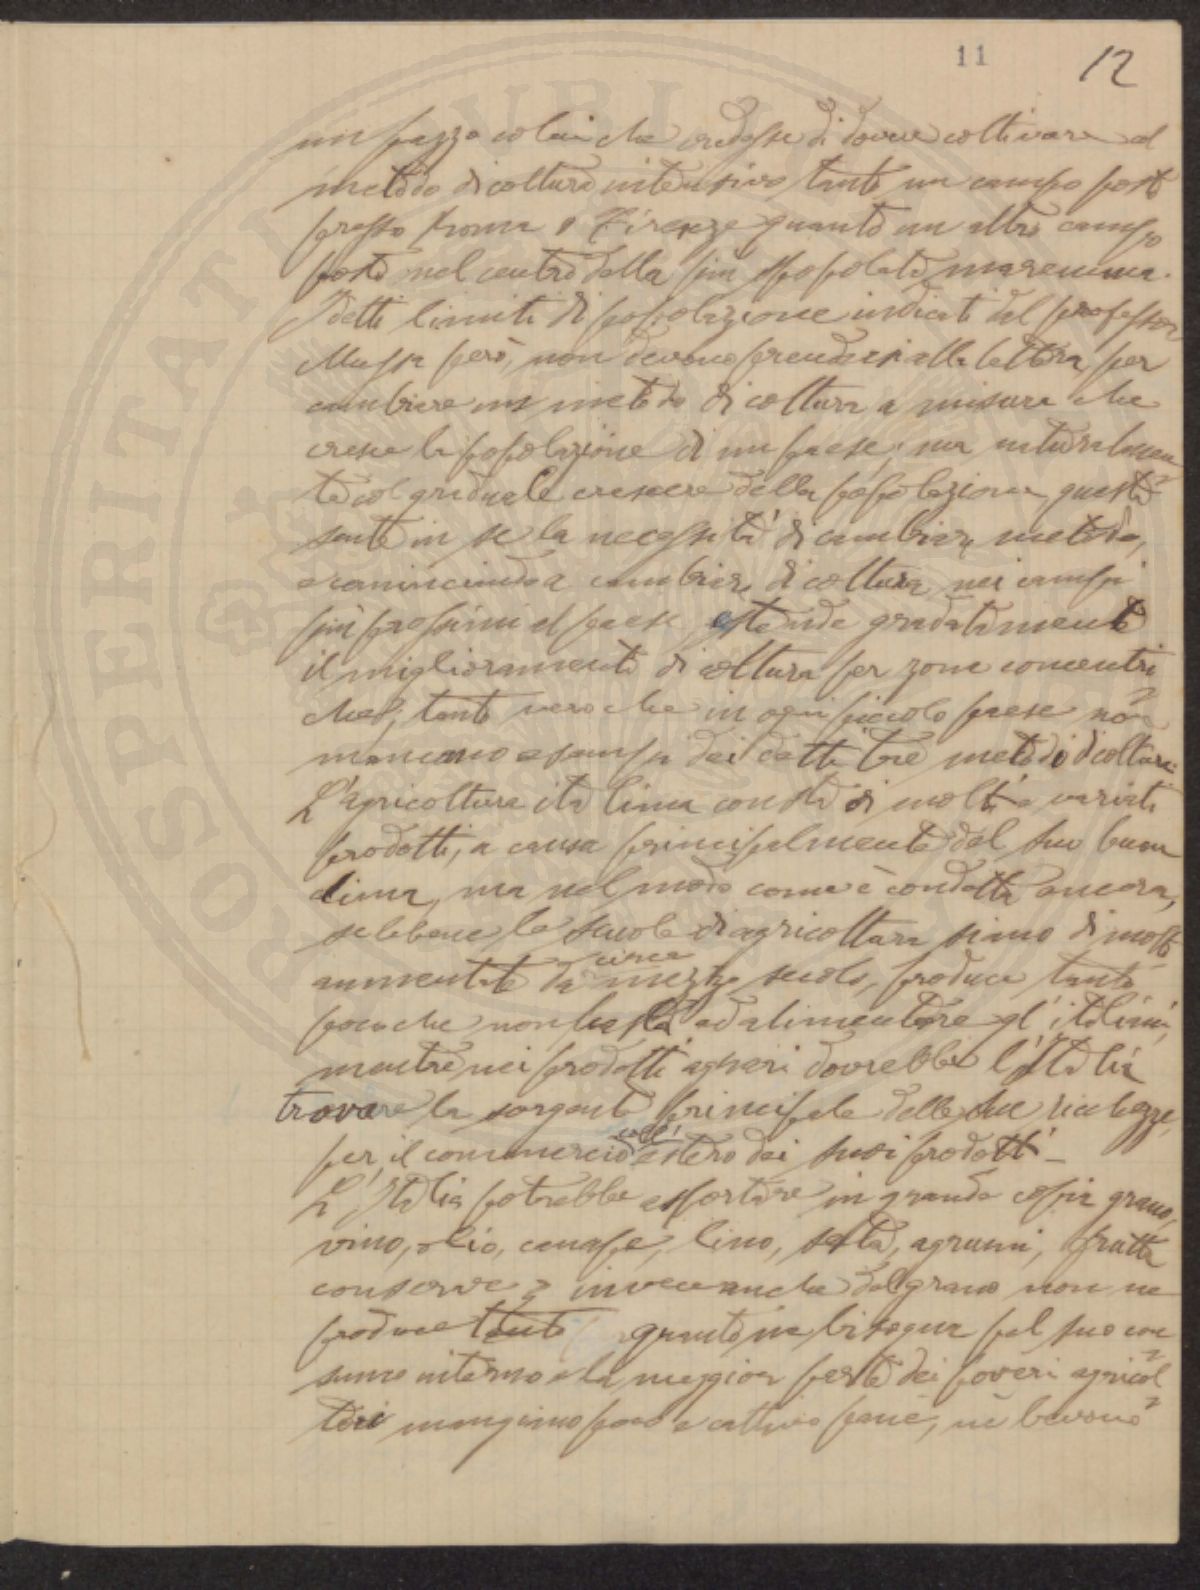 11 12
un pazzo colui che credesse di dover coltivare al
metodo di coltura intensivo tanto un campo posto
presso Roma o Firenze quanto un altro campo
posto nel centro della più spopolata maremma.
I detti limiti di popolazione indicati dal professor
Mussa però, non devono prendersi alla lettera, per
cambiare un metodo di coltura a misura che
cresce la popolazione di un paese; ma naturalmen
te col graduale crescere della popolazione, questa
sente in se la necessità di cambiar metodo,
e cominciando a cambiar di coltura nei campi
più prossimi al paese estende gradatamente
il miglioramento di coltura per zone concentri
che, tanto vero che in ogni piccolo paese non
mancano esempi dei detti tre metodi di coltura.
L'agricoltura italiana consta di molti e variati
prodotti, a causa principalmente del suo buon
clima, ma nel modo come è condotta ancora,
sebbene le scuole di agricoltura siano di molto
circa
aumentate da mezzo secolo, produce tanto
poco che non basta ad alimentare gl'italiani,
mentre nei prodotti agrari dovrebbe l'Italia
trovare la sorgente principale delle sue ricchezze,
per il commercio estero dei suoi prodotti _
L'Italia potrebbe esportare in grande copia grano,
vino, olio, canape, lino, seta, agrumi, frutta
conserve; invece anche del grano non ne
produce tanto quanto ne bisogna pel suo con
sumo interno e la maggior parte dei poveri agricol
tori mangiano poco e cattivo pane, nè bevono